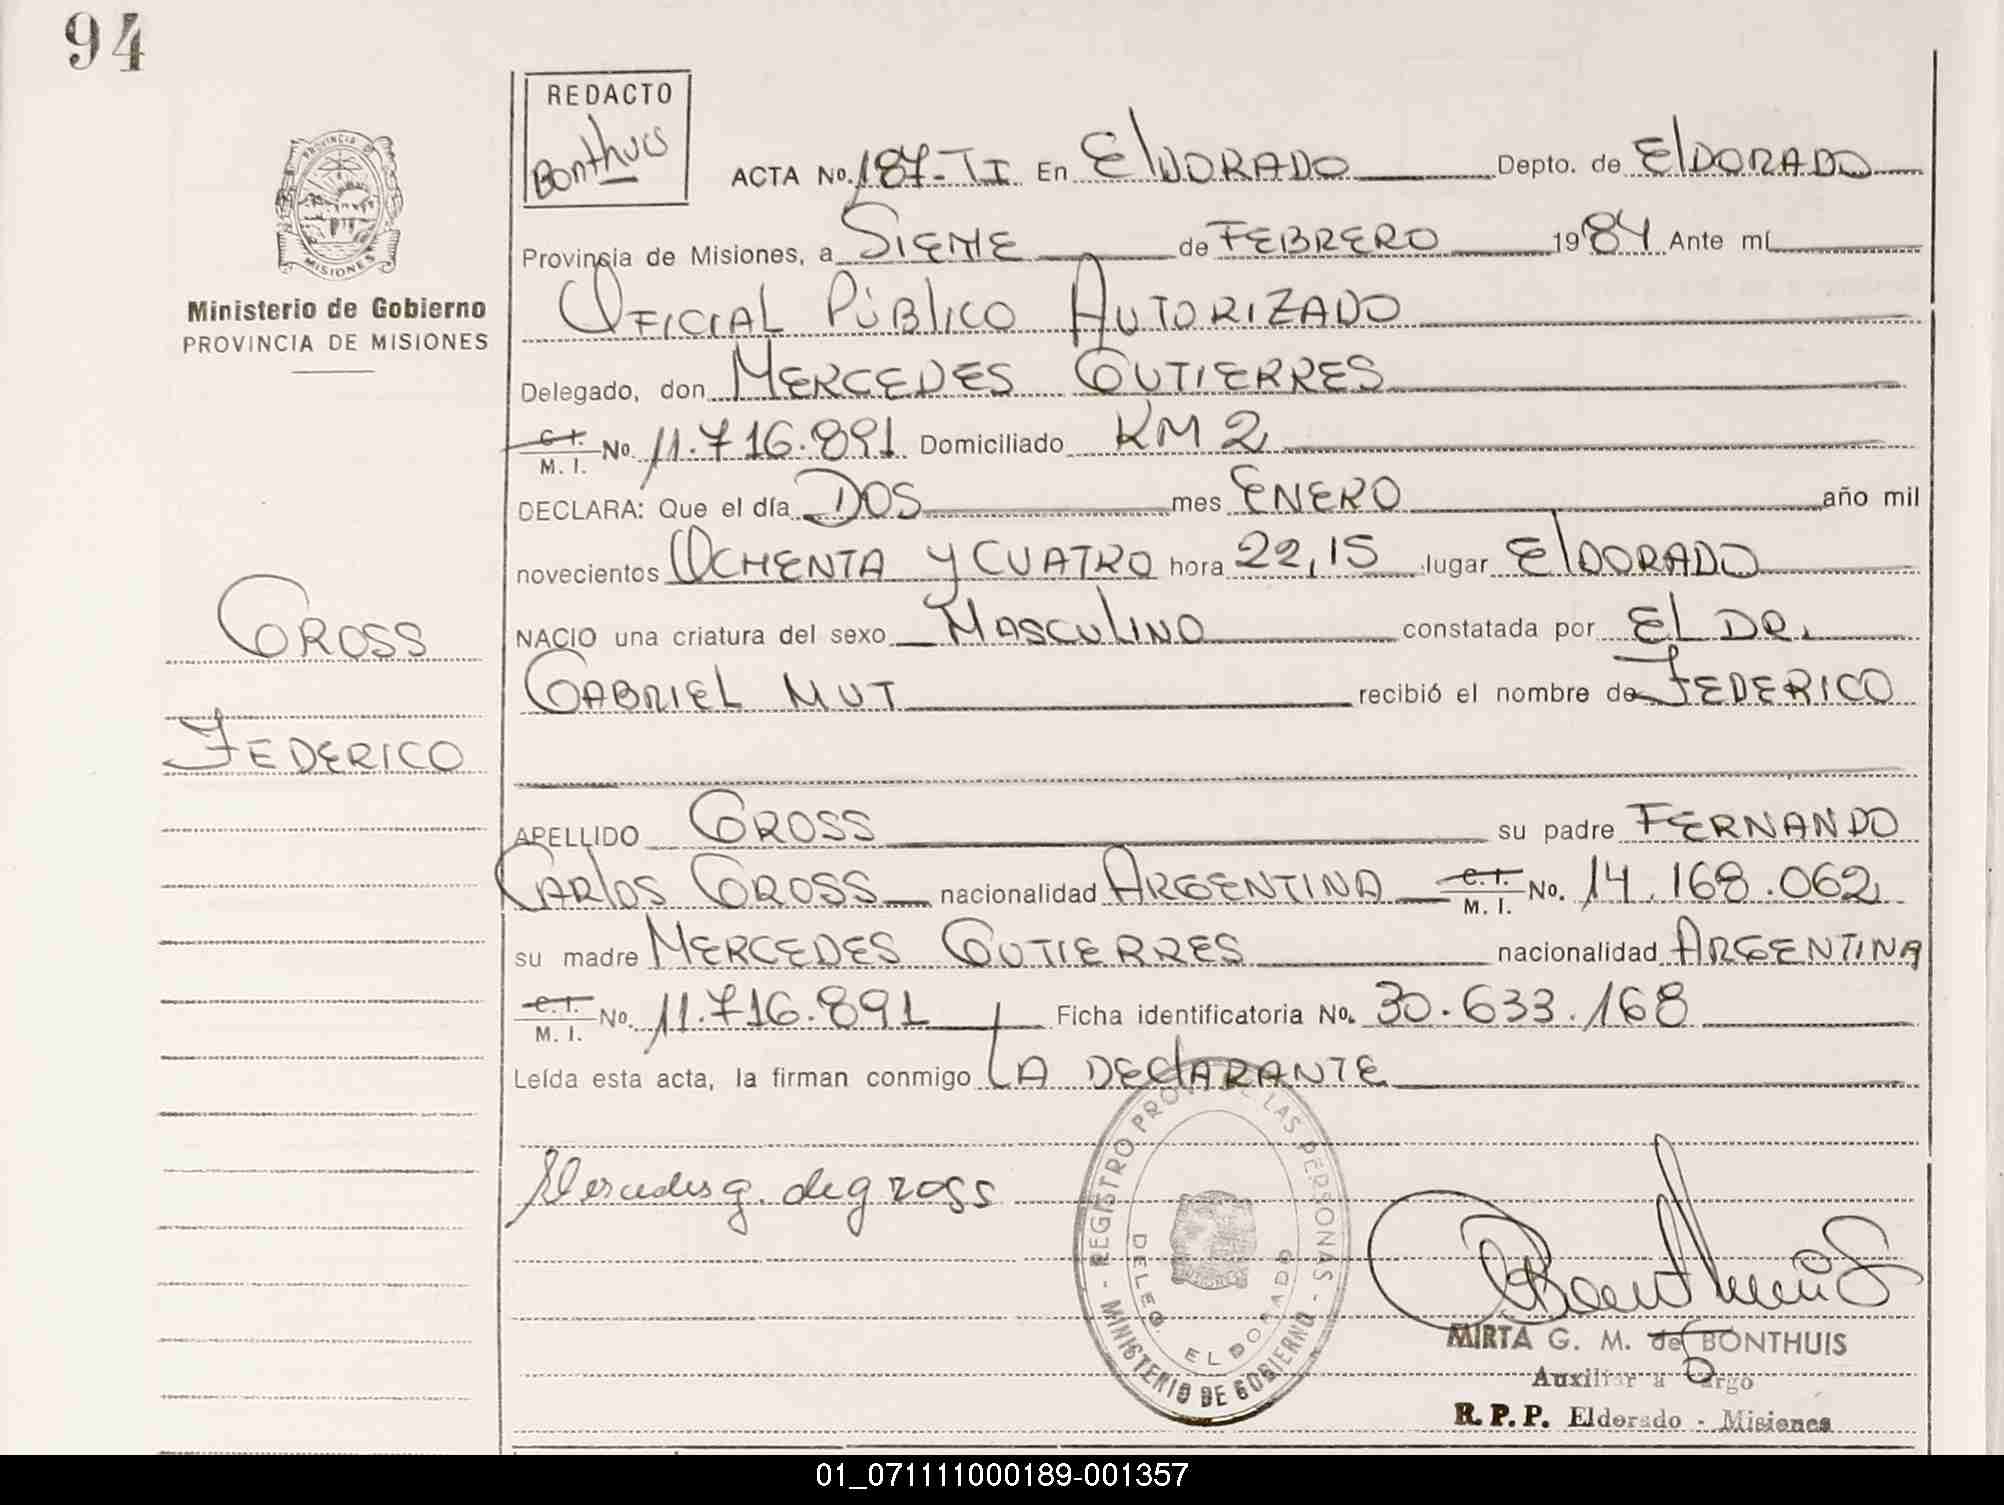 94
REDACTO
Bonthuis
ACTA No. 187-TI En ElDORADO Depto. de ElDORADO
Provincia de Misiones, a SIETE de FEBRERO 1984 Ante mí
OFICIAL PÚBlICO AUTORIZADO
Delegado, don MERCEDES GUTIERRES
C.I. M. I. No. 11.716.891 Domiciliado KM 2
DECLARA: Que el día DOS mes ENERO año mil
novecientos OCHENTA y CUATRO hora 22,15 lugar ElDORADO
NACIO una criatura del sexo MASCUlINO constatada por EL DR.
GABRIEL MUT recibió el nombre de FEDERICO
APELLIDO GROSS su padre FERNANDO
CARlOS GROSS nacionalidad ARGENTINA C.I. M. I. No. 14.168.062
su madre MERCEDES GUTIERRES nacionalidad ARGENTINA
C.I. M. I. No. 11.716.891 Ficha identificatoria No. 30.633.168
Leída esta acta, la firman conmigo LA DEClARANTE
Mercedes g. de gross
MISIONES
Ministerio de Gobierno
PROVINCIA DE MISIONES
GROSS
FEDERICO
- REGISTRO PROV. DE LAS PERSONAS -
MINISTERIO DE GOBIERNO
DELEG. ELDORADO
Bonthuis
MIRTA G. M. de BONTHUIS
Auxiliar a Cargo
R. P. P. Eldorado - Misiones
01_071111000189-001357